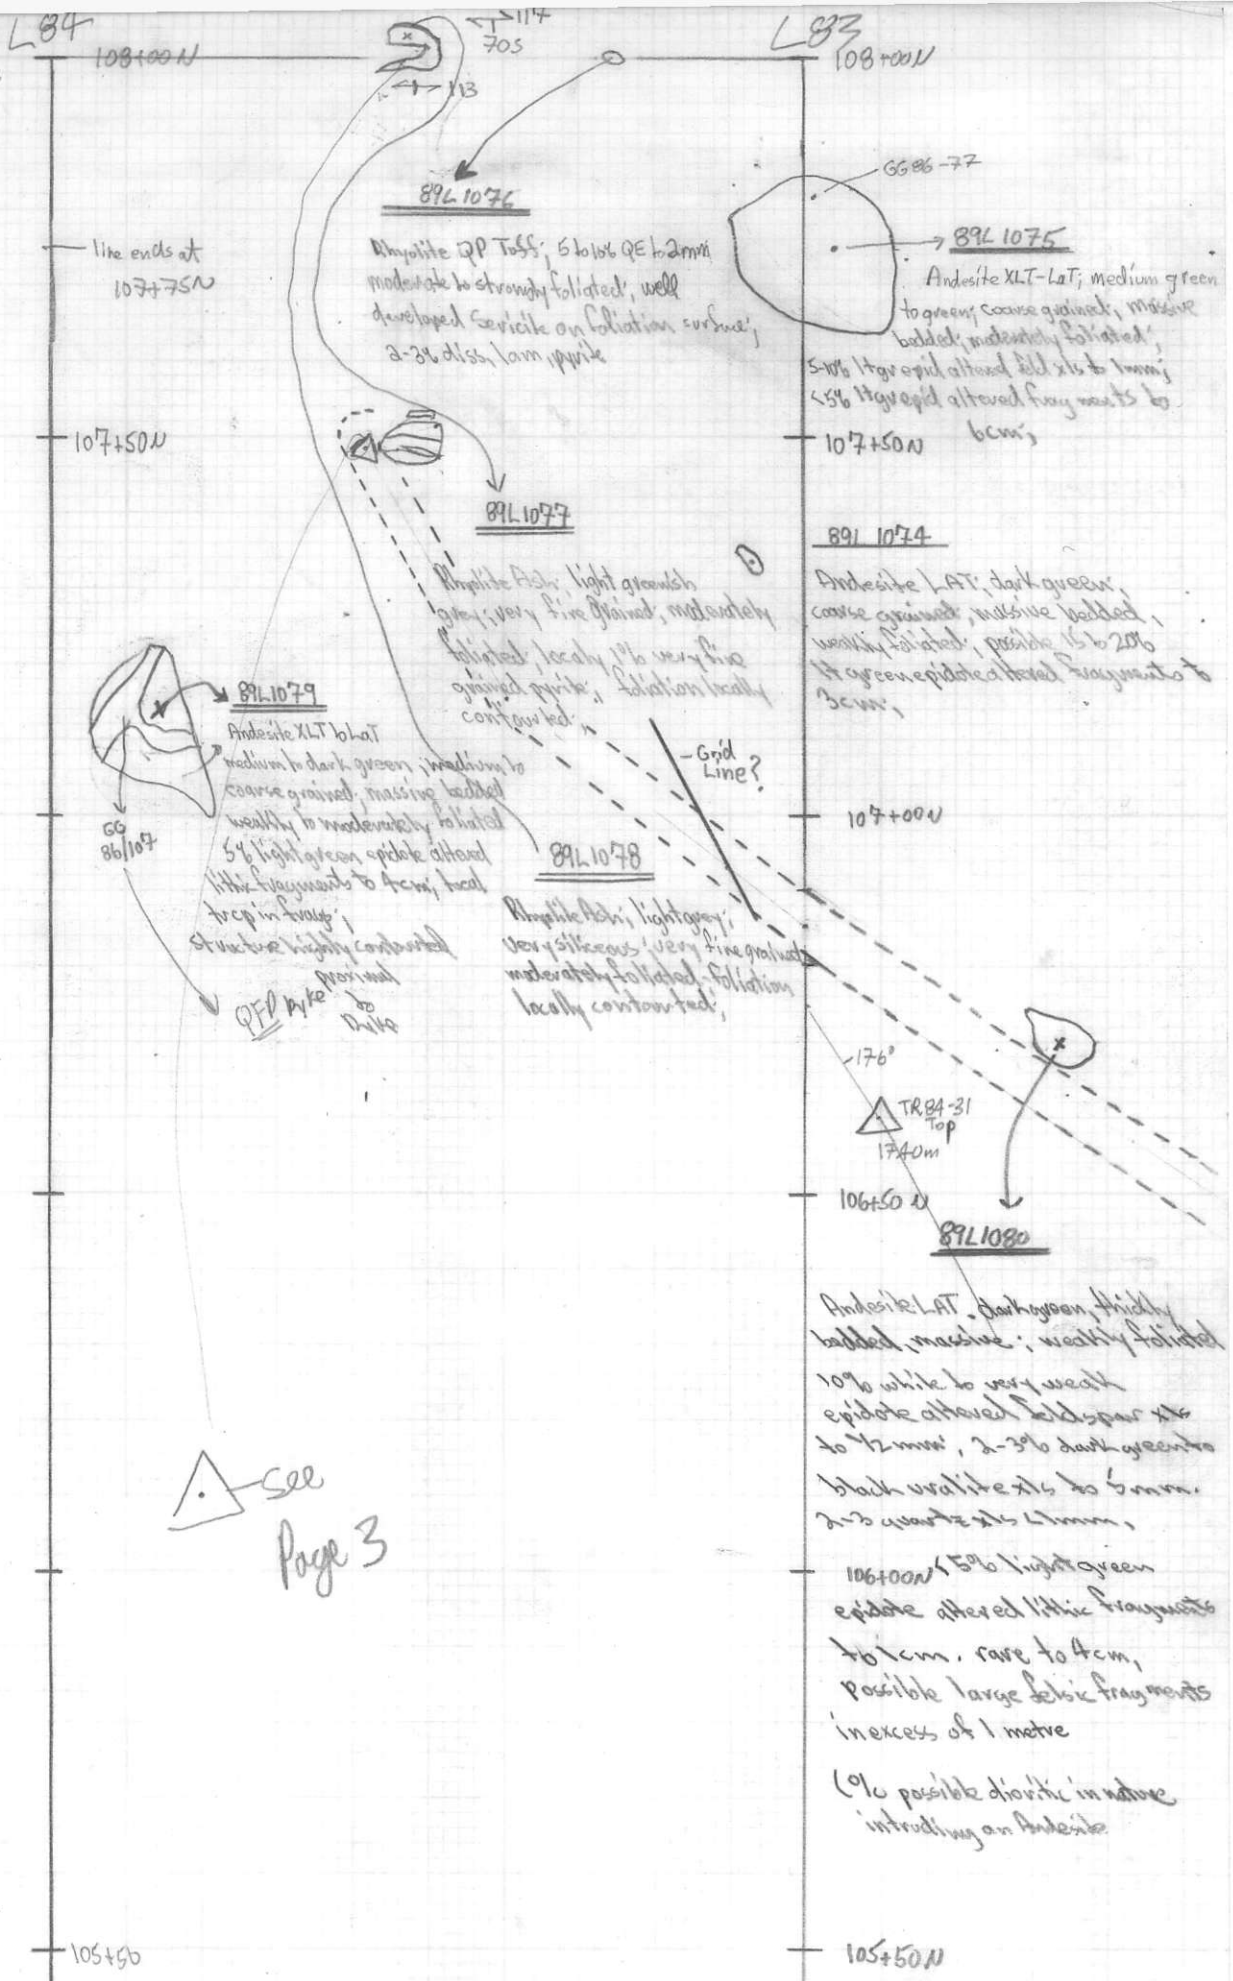 L84
108+00N
117
70S
113
L83
108+00N
GG86-77
89L1076
Rhyolite QP Tuff; 5 to 10% QE to 2mm
moderate to strongly foliated; well
developed sericite on foliation surface;
2-3% diss, lam, pyrite
line ends at
107+75N
89L1075
Andesite XLT-LaT; medium green
to green; coarse grained; massive
bedded; moderately foliated;
5-10% ltgr epid altered feld xls to 1mm;
<5% ltgr epid altered fragments to
6cm;
107+50N
107+50N
89L1077
Rhyolite Ash; light greenish
grey; very fine grained; moderately
foliated; locally 1% very fine
grained pyrite; foliation locally
contourted;
89L1074
Andesite LAT; dark green;
coarse grained; massive bedded,
weakly foliated; possible 15 to 20%
lt green epidote altered fragments to
3cm;
89L1079
Andesite XLT to LaT
medium to dark green; medium to
coarse grained; massive bedded
weakly to moderately foliated
5% light green epidote altered
lithic fragments to 4cm; local
trcp in frags;
structure highly contourted
proximal
to
Dyke
GG
86/107
QFP Dyke
-Grid
Line?
107+00N
89L1078
Rhyolite Ash; light grey;
very siliceous; very fine grained
moderately foliated; foliation
locally contourted;
176°
TR84-31
Top
1740m
106+50N
89L1080
Andesite LAT. dark green, thickly
bedded, massive; weakly foliated
10% white to very weak
epidote altered feldspar xls
to 1/2mm; 2-3% dark green to
black uralite xls to 5mm.
2-3 quartz xls <1mm,
106+00N <5% light green
epidote altered lithic fragments
to 1cm. rare to 4cm,
possible large felsic fragments
in excess of 1 metre
(% possible dioritic in nature
intruding an Andesite
see
Page 3
105+50
105+50N